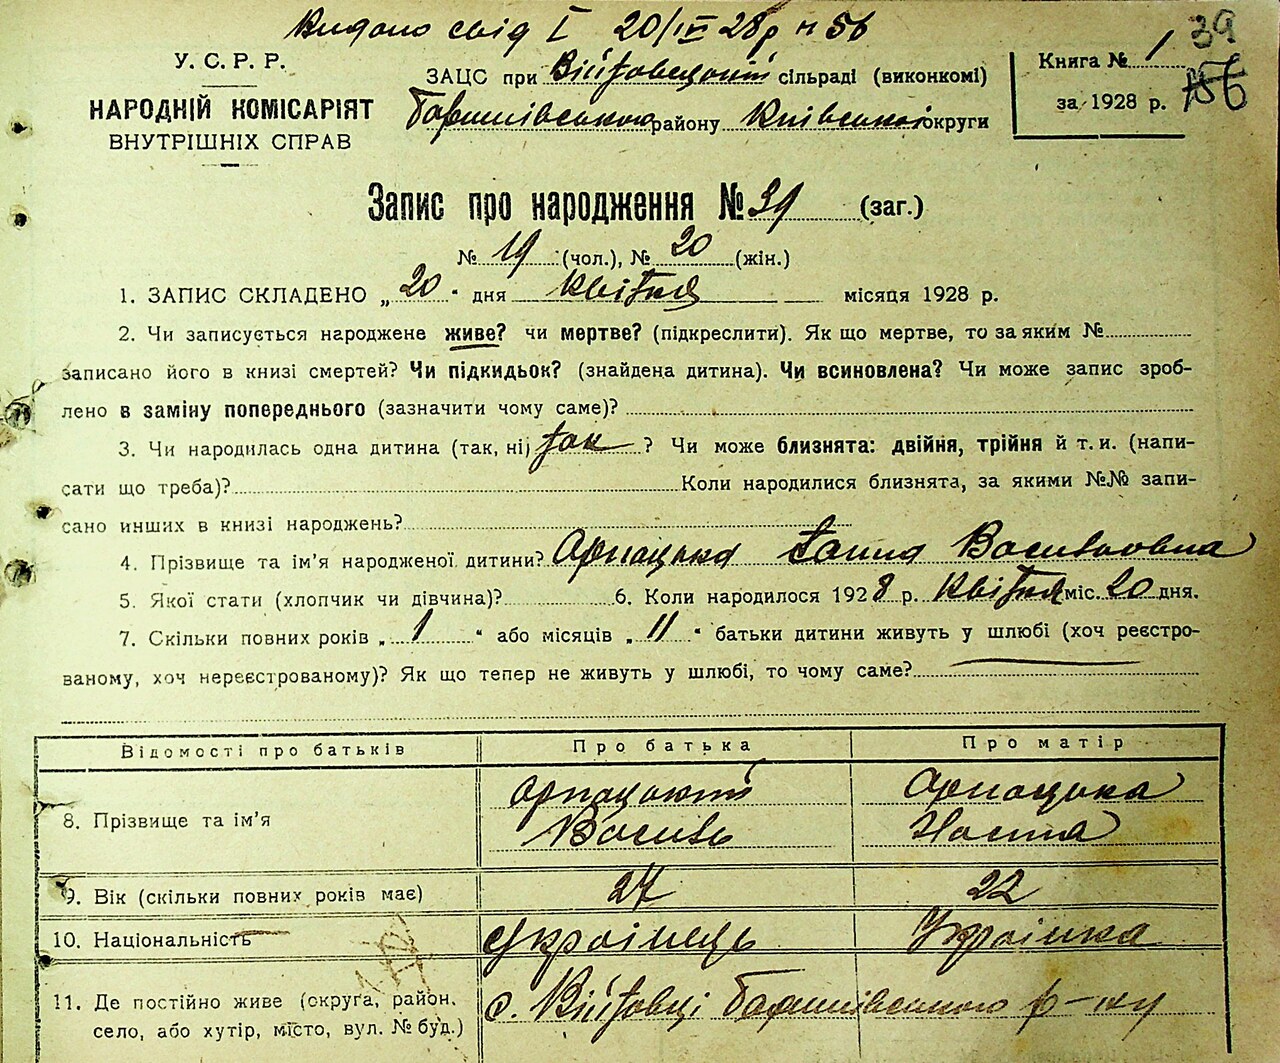 Видано свід I 20/IV 28р № 56
39
У. С. Р. Р.
НАРОДНІЙ КОМІСАРІЯТ
ВНУТРІШНІХ СПРАВ
ЗАЦС при Війтовецькій сільраді (виконкомі)
Баришівського району Київської округи
Книга № 1
за 1928 р.
156
Запис про народження № 39 (заг.)
№ 19 (чол.), № 20 (жін.)
1. ЗАПИС СКЛАДЕНО „ 20 " дня квітня місяця 1928 р.
2. Чи записується народжене живе? чи мертве? (підкреслити). Як що мертве, то за яким №
записано його в книзі смертей? Чи підкидьок? (знайдена дитина). Чи всиновлена? Чи може запис зроб-
лено в заміну попереднього (зазначити чому саме)?
3. Чи народилась одна дитина (так, ні) так ? Чи може близнята: двійня, трійня й т. и. (напи-
сати що треба)? Коли народилися близнята, за якими №№ запи-
сано инших в книзі народжень?
4. Прізвище та ім'я народженої дитини? Арпацька Ганна Василовна
5. Якої стати (хлопчик чи дівчина)? 6. Коли народилося 1928 р. квітня міс. 20 дня.
7. Скільки повних років „ 1 " або місяців „ 11 " батьки дитини живуть у шлюбі (хоч реєстро-
ваному, хоч нереєстрованому)? Як що тепер не живуть у шлюбі, то чому саме?
Відомості про батьків Про батька Про матір
8. Прізвище та ім'я Арпацький Василь Арпацька Настя
9. Вік (скільки повних років має) 27 22
10. Національність Українець Українка
11. Де постійно живе (округа, район,
село, або хутір, місто, вул. № буд.) с. Війтовці Баришівського р-ну